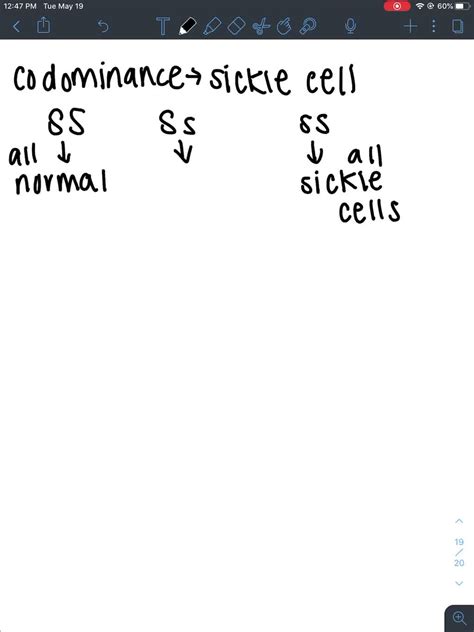 12:47 PM Tue May 19
60%
T
codominance→ sickle cell
SS Ss ss
all ↓ ↓ ↓ all
normal sickle
cells
19
/
20